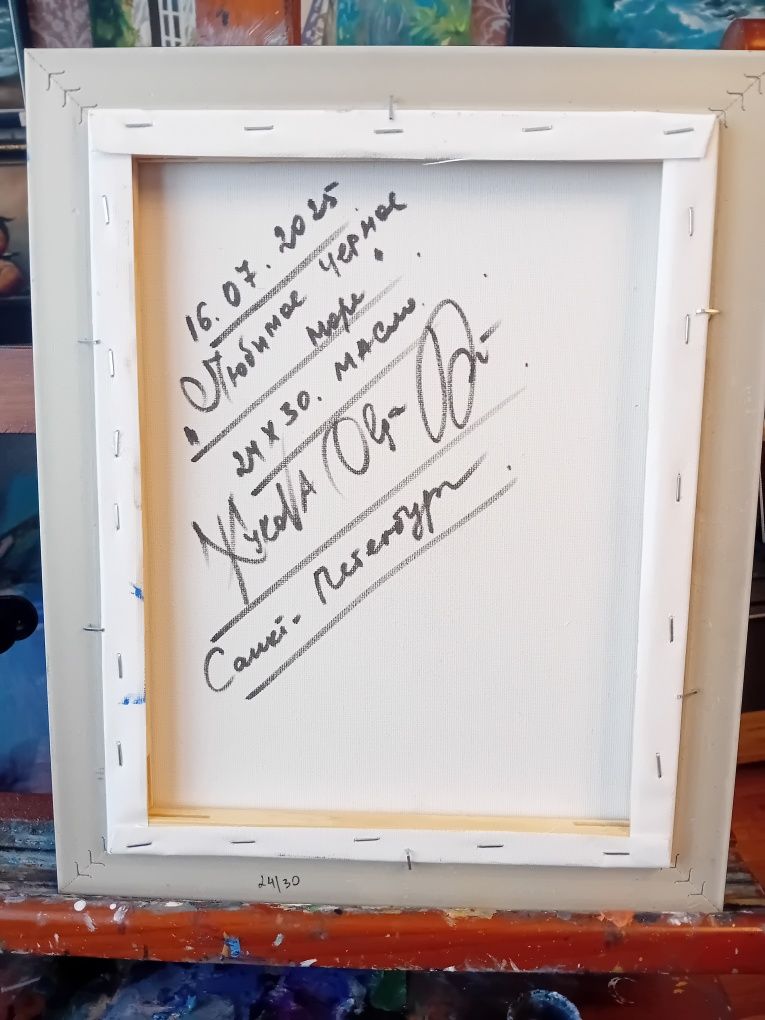 16.07.2025
Любимое Черное
море.
24х30. масло.
Жукова Olga
Санкт-Петербург.
24/30